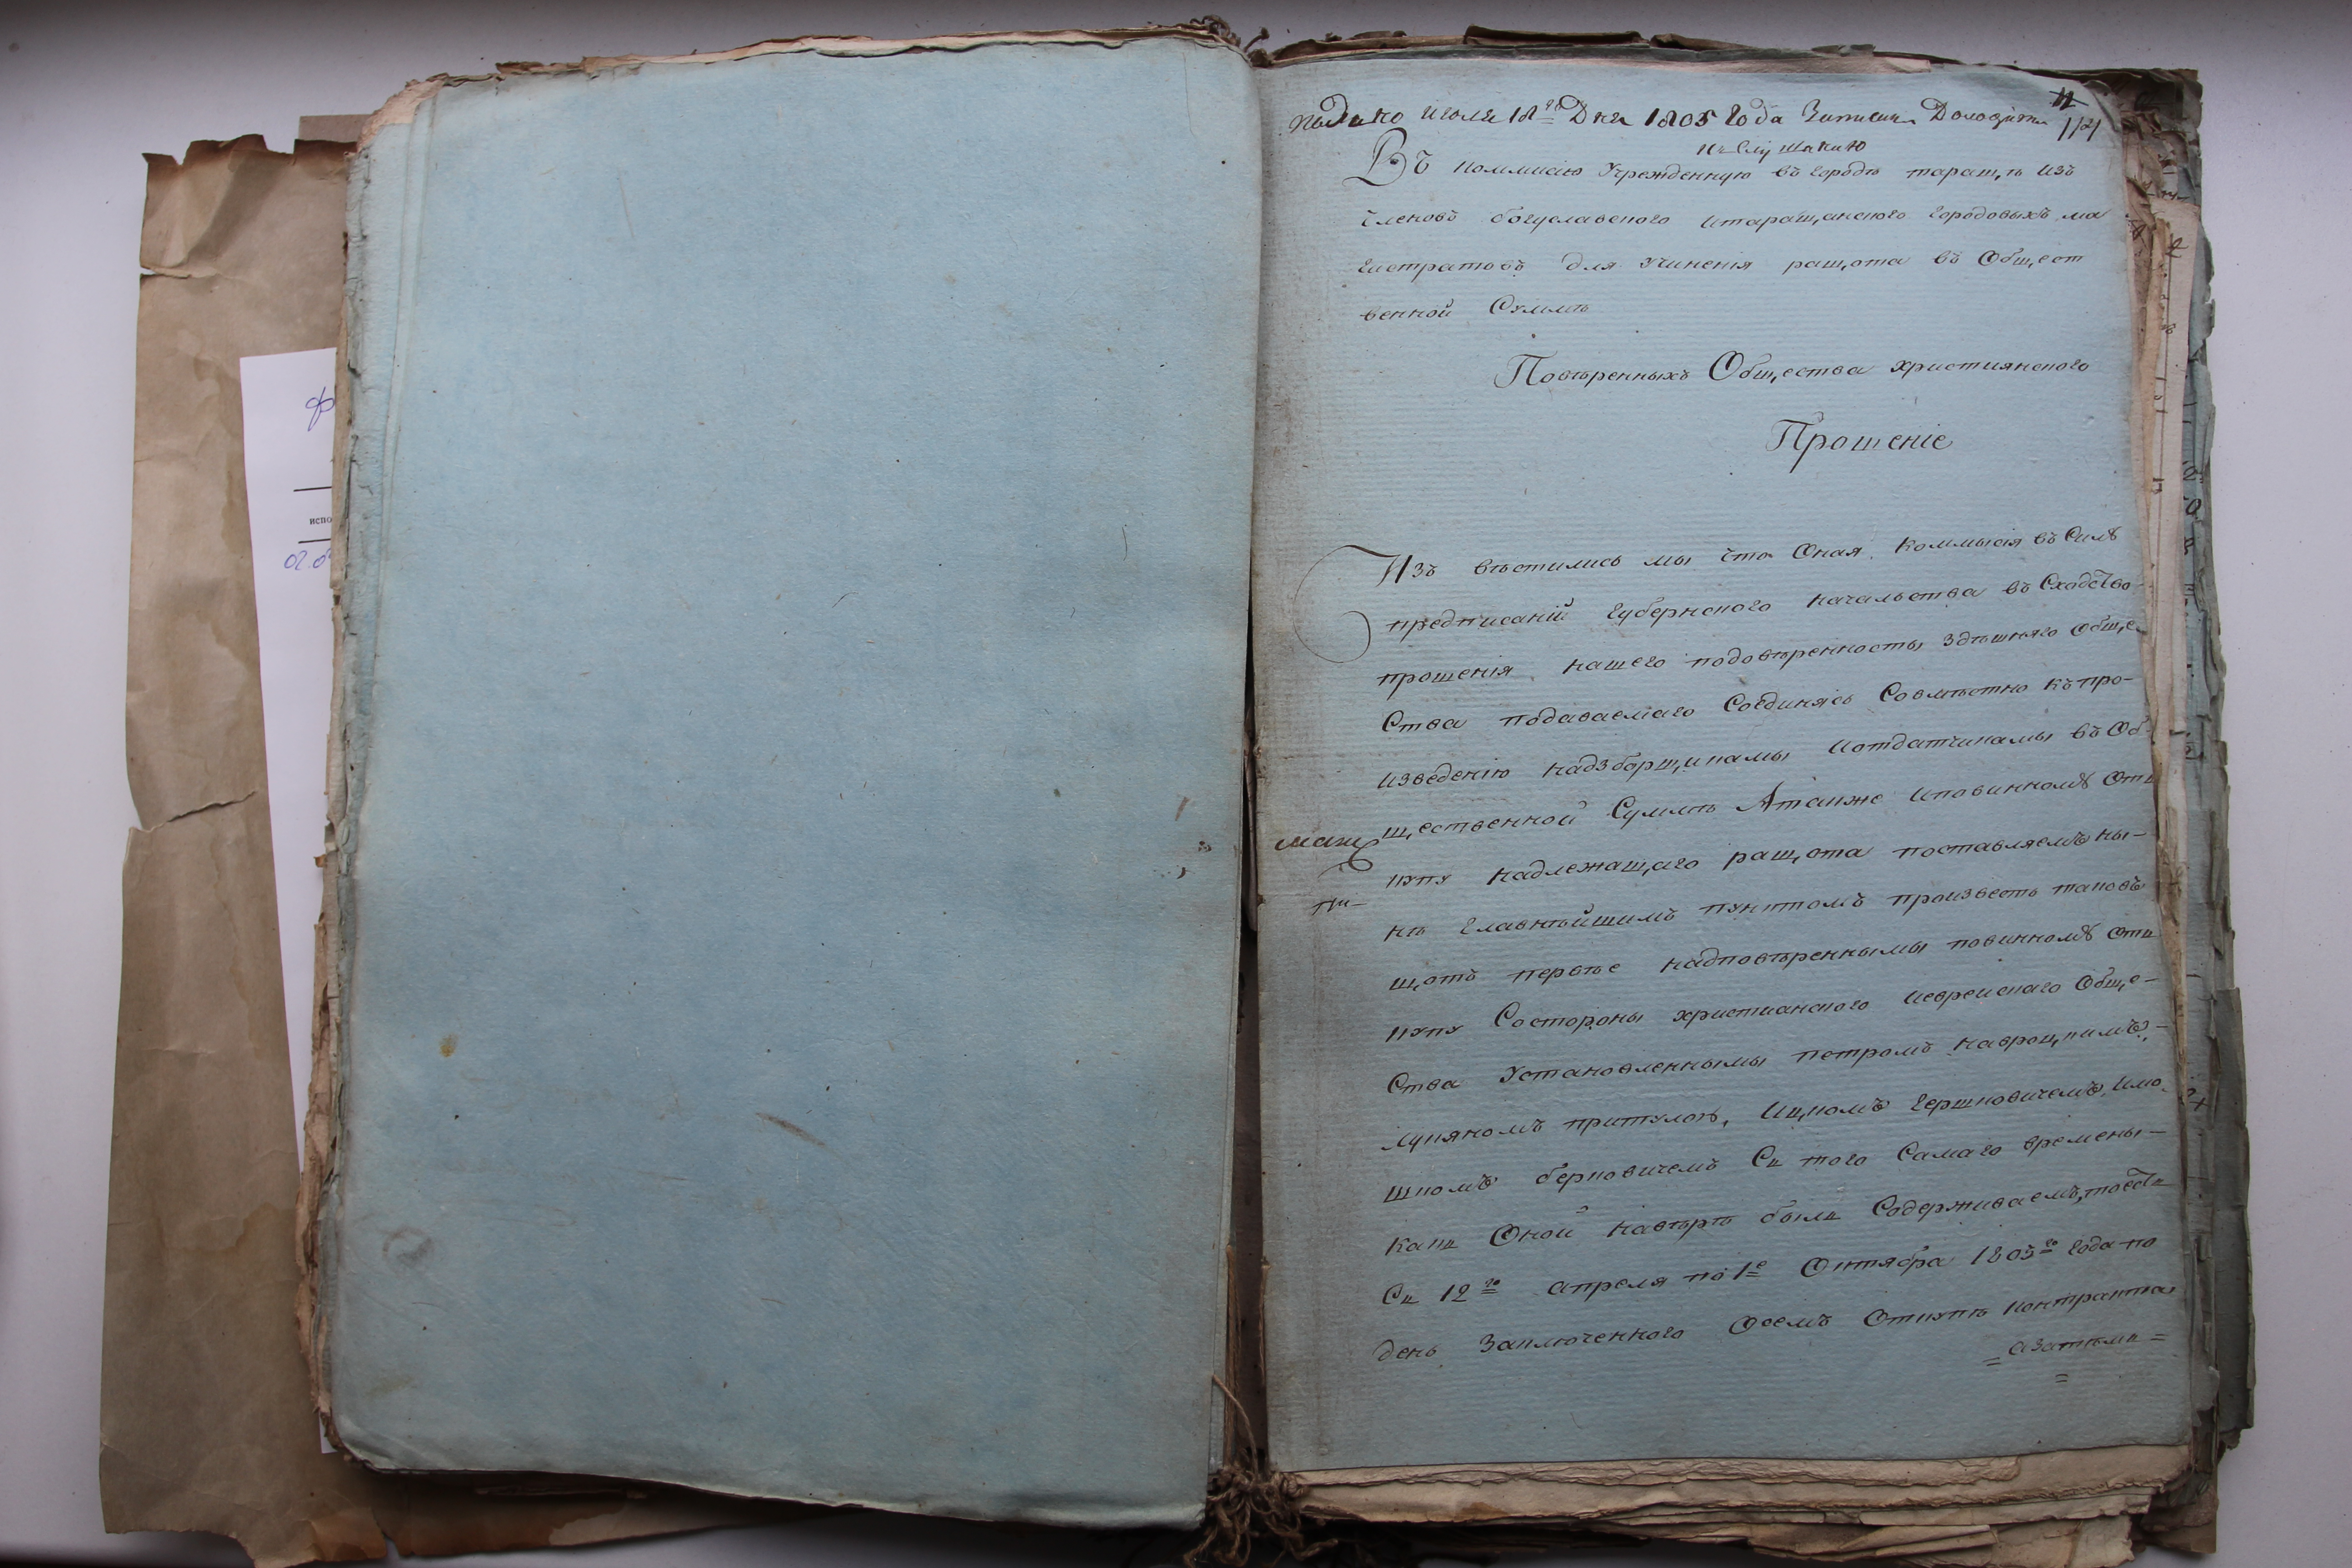 11
подано июля 18го Дня 1805 года Записаня Доложить 11/21
къ слушанию
Въ коммисію Учрежденную въ городѣ таращѣ изъ
членовъ богуславского итаращанского городовыхъ ма
гистратовъ для учиненія ращота въ Общест
венной Суммѣ
Повѣренныхъ Общества християнского
Прошеніе
Изъ вѣстились мы что Оная Коммысія въ Силѣ
предписаній Губернского начальства въ Сходство
прошенія нашего подовѣренносты здѣшняго обще
Ства подаваемаго Соединясь Совмѣстно къ про-
изведенію надзборщикамы Иотдатчикамы въ Об-
щественной Суммѣ Атакже Иповинномѣ Отъ
купу надлежащаго ращота поставляемъ ны-
нѣ Главнѣйшимъ пунктомъ произвесть таковъ
щотъ первѣе надповѣреннымы повинномѣ отъ
купу Состороны християнского Иеврейскаго Обще-
Ства Установленнымы петромъ навроцкимъ,-
Лукяномъ притулою, Ицкомъ Гершковичемъ, Имо
шкомъ берковичемъ Съ того Самаго времены-
какъ Оной навѣрѣ былъ Содерживаемъ, тоесть
Съ 12го апреля по 1е Октября 1805го года по
день Заключенного Осемъ Откупѣ контракта,
= азатѣмъ =
=
испо
02.0
ф